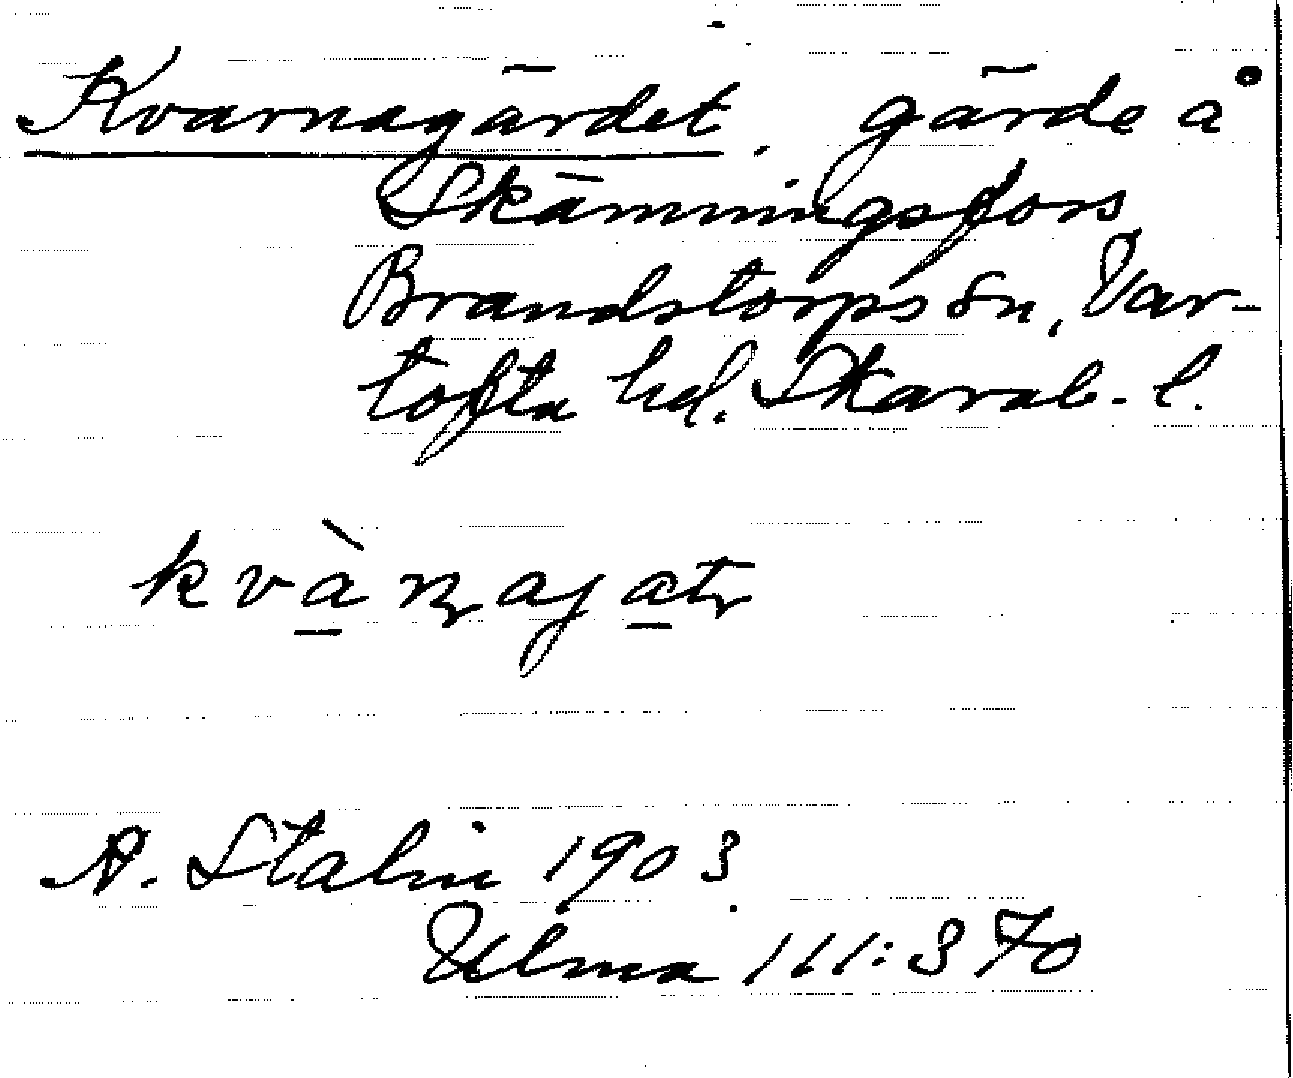 Kvarnagärdet, gärde å
Skämningsfors
Brandstorps sn, Var-
tofta hd. Skarab. l.
kvàṉajat
A. Stalin 1903
Ulma 111:370